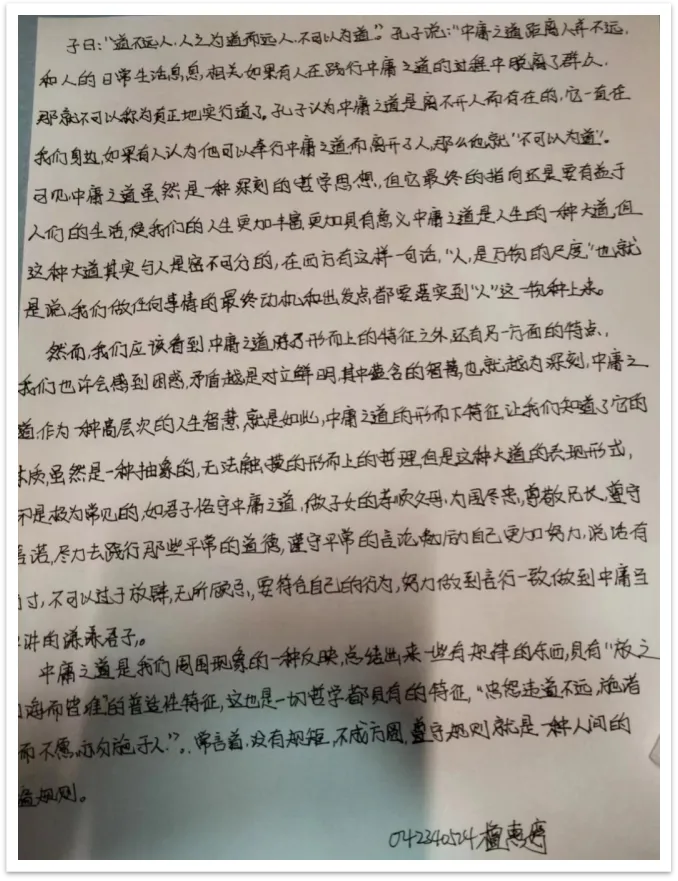 子曰:"道不远人,人之为道而远人,不可以为道。"孔子说:"中庸之道距离人并不远,
和人的日常生活息息相关,如果有人在践行中庸之道的过程中脱离了群众,
那就不可以称为真正地实行道了。孔子认为中庸之道是离不开人而存在的,它一直在
我们身边,如果有人认为他可以奉行中庸之道而离开了人,那么他就"不可以为道"。
可见中庸之道虽然是一种深刻的哲学思想,但它最终的指向还是要有益于
人们的生活,使我们的人生更加丰富,更加具有意义,中庸之道是人生的一种大道,但
这种大道其实与人是密不可分的,在西方有这样一句话,"人,是万物的尺度"也就
是说,我们做任何事情的最终动机和出发点都要落实到"人"这一物种上来。
然而,我们应该看到,中庸之道,除了形而上的特征之外,还有另一方面的特点,
我们也许会感到困惑,矛盾越是对立鲜明,其中蕴含的智慧,也就越为深刻,中庸之
道,作为一种高层次的人生智慧,就是如此,中庸之道的形而下特征,让我们知道了它的
本质,虽然是一种抽象的,无法触摸的形而上的哲理,但是这种大道的表现形式,
不是极为常见的,如君子恪守中庸之道,做子女的孝顺父母,为国尽忠,尊敬兄长,遵守
诺,尽力去践行那些平常的道德,遵守平常的言论,勉励自己更加努力,说话有
寸,不可以过于放肆,无所顾忌,要符合自己的行为,努力做到言行一致,做到中庸当
讲的谦谦君子。
中庸之道是我们周围现象的一种反映,总结出来一些有规律的东西,具有"放之
海而皆准"的普适性特征,这也是一切哲学都具有的特征,"忠恕违道不远,施诸
而不愿,亦勿施于人!"。常言道,没有规矩,不成方圆,遵守规则就是一种人间的
规则。
042340524 檀惠婷